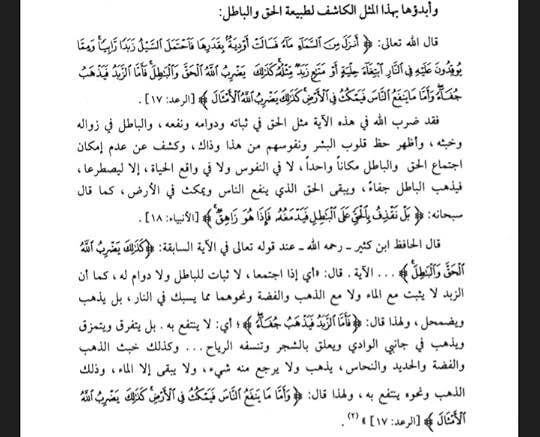 وأبدؤها بهذا المثل الكاشف لطبيعة الحق والباطل:
قال الله تعالى: ﴿ أَنزَلَ مِنَ ٱلسَّمَآءِ مَآءً فَسَالَتْ أَوْدِيَةٌۢ بِقَدَرِهَا فَٱحْتَمَلَ ٱلسَّيْلُ زَبَدًا رَّابِيًا ۚ وَمِمَّا
يُوقِدُونَ عَلَيْهِ فِى ٱلنَّارِ ٱبْتِغَآءَ حِلْيَةٍ أَوْ مَتَٰعٍ زَبَدٌ مِّثْلُهُۥ ۚ كَذَٰلِكَ يَضْرِبُ ٱللَّهُ ٱلْحَقَّ وَٱلْبَٰطِلَ ۚ فَأَمَّا ٱلزَّبَدُ فَيَذْهَبُ
جُفَآءً ۖ وَأَمَّا مَا يَنفَعُ ٱلنَّاسَ فَيَمْكُثُ فِى ٱلْأَرْضِ ۚ كَذَٰلِكَ يَضْرِبُ ٱللَّهُ ٱلْأَمْثَالَ ﴾ [الرعد: ١٧] .
فقد ضرب الله في هذه الآية مثل الحق في ثباته ودوامه ونفعه، والباطل في زواله
وخبثه، وأظهر حظ قلوب البشر ونفوسهم من هذا وذاك، وكشف عن عدم إمكان
اجتماع الحق والباطل مكاناً واحداً، لا في النفوس ولا في واقع الحياة، إلا ليصطرعا،
فيذهب الباطل جفاءً، ويبقى الحق الذي ينفع الناس ويمكث في الأرض، كما قال
سبحانه: ﴿ بَلْ نَقْذِفُ بِٱلْحَقِّ عَلَى ٱلْبَٰطِلِ فَيَدْمَغُهُۥ فَإِذَا هُوَ زَاهِقٌ ﴾ [الأنبياء: ١٨] .
قال الحافظ ابن كثير ـ رحمه الله ـ عند قوله تعالى في الآية السابقة: ﴿ كَذَٰلِكَ يَضْرِبُ ٱللَّهُ
ٱلْحَقَّ وَٱلْبَٰطِلَ ۚ ﴾ ... الآية . قال: «أي إذا اجتمعا، لا ثبات للباطل ولا دوام له، كما أن
الزبد لا يثبت مع الماء ولا مع الذهب والفضة ونحوهما مما يسبك في النار، بل يذهب
ويضمحل، ولهذا قال: ﴿ فَأَمَّا ٱلزَّبَدُ فَيَذْهَبُ جُفَآءً ۖ ﴾ ؛ أي: لا ينتفع به . بل يتفرق ويتمزق
ويذهب في جانبي الوادي ويعلق بالشجر وتنسفه الرياح ... وكذلك خبث الذهب
والفضة والحديد والنحاس، يذهب ولا يرجع منه شيء، ولا يبقى إلا الماء، وذلك
الذهب ونحوه ينتفع به، ولهذا قال: ﴿ وَأَمَّا مَا يَنفَعُ ٱلنَّاسَ فَيَمْكُثُ فِى ٱلْأَرْضِ ۚ كَذَٰلِكَ يَضْرِبُ ٱللَّهُ
ٱلْأَمْثَالَ ﴾ [الرعد: ١٧] » (٢) .